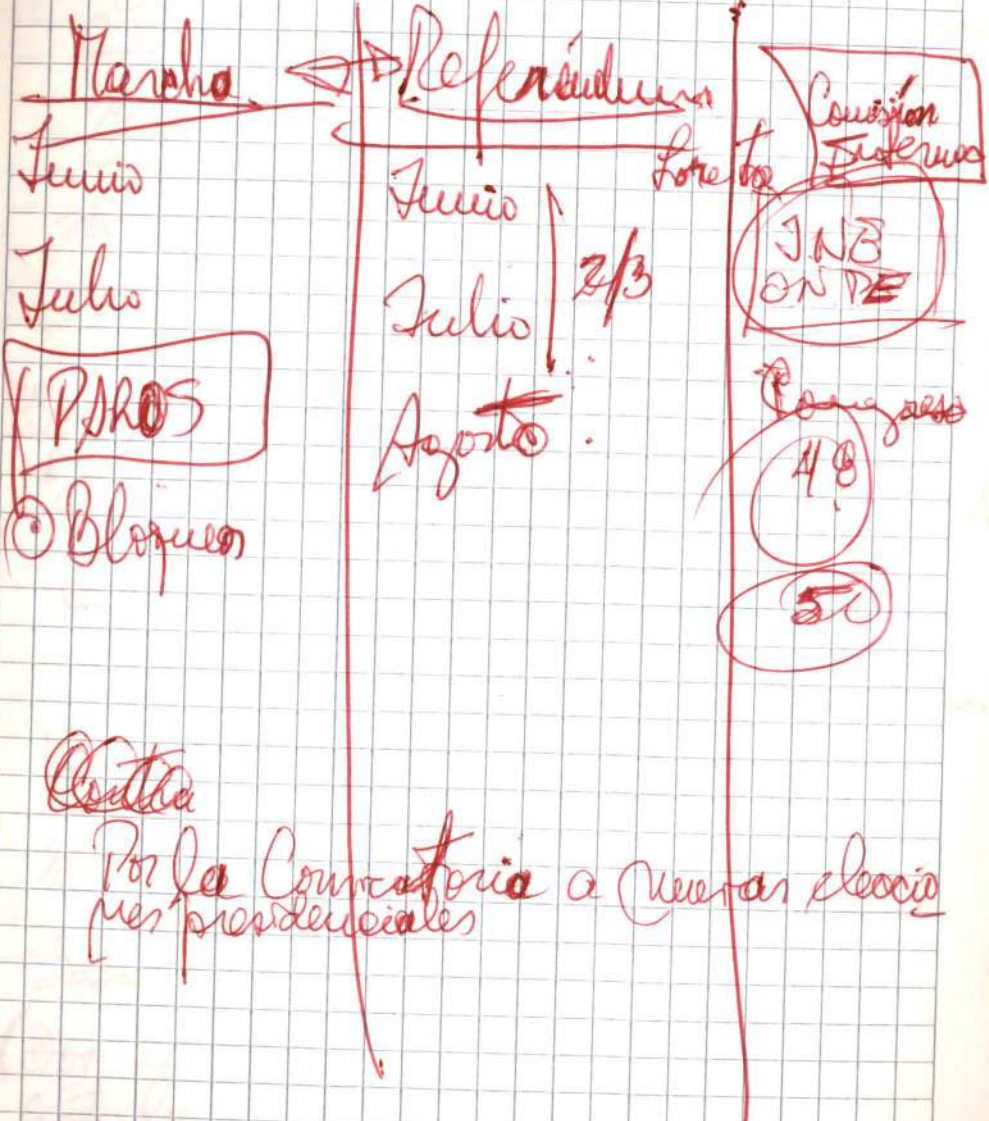 Marcha
Junio
Julio
PAROS
Bloqueos
Referéndum
Loreto
Junio
Julio
2/3
Agosto
Comisión
JNE
ONPE
Congreso
48
50
Por la Convocatoria a nuevas eleccio
nes presidenciales